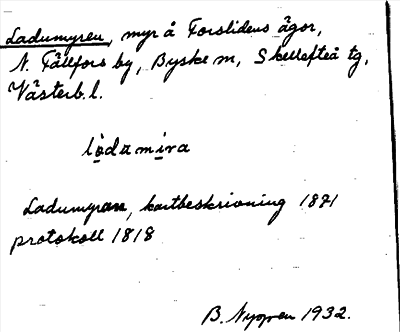 Ladumyren, myr å Forslidens ägor,
N. Fällfors by, Byske sn, Skellefteå tg,
Västerb. l.
lòdamịra
Ladumyran, kartbeskrivning 1871
protokoll 1818
B. Nygren 1932.